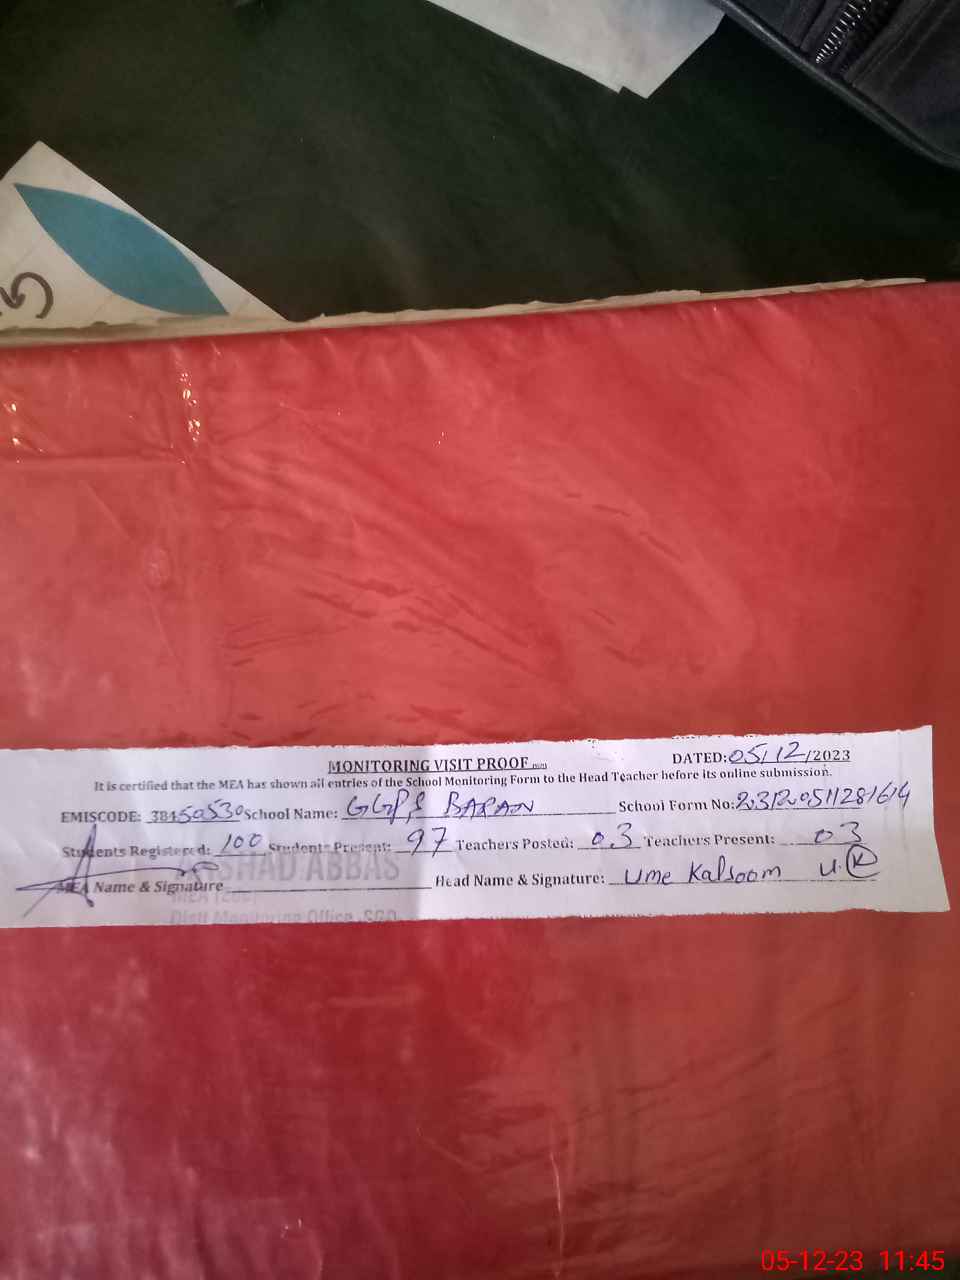 5
MONITORING VISIT PROOF
DATED: 05/12/2023
It is certified that the MEA has shown all entries of the School Monitoring Form to the Head Teacher before its online submission.
EMISCODE: 38450530 School Name: GGPS School Form No:
Students Registered: 100 Students Present: 97 Teachers Posted: 03 Teachers Present: 03
SHAD ABBAS
MEA Name & Signature Head Name & Signature: Ume Kalsoom U.K
Distt Monitoring Office, SGD
05-12-23 11:45